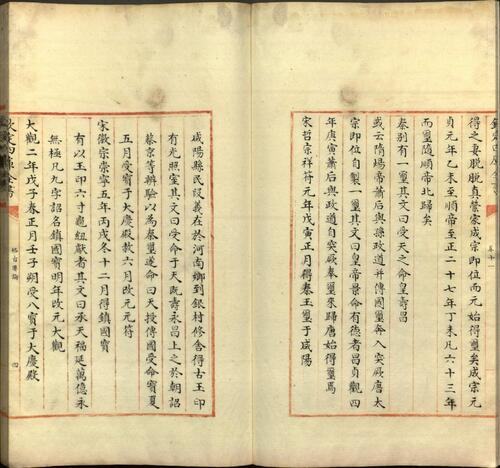 得之妻脫脫真營家成宗即位而元璽矣成宗元
貞元年乙未至順帝至正二十七年丁未凡六十三年
而璽隨順帝北歸矣
秦别有一璽其文曰受天之命皇壽昌
或云隋場帝蕭后與孫政道并傳國璽奔入突厥唐太
宗即位自製一璽其文曰皇帝景命有德者昌貞觀四
年庚寅蕭后與政道自突厥奉璽來歸唐始得璽焉
宋哲宗祥符元年戊寅正月得秦玉璽于咸陽
咸陽縣民段義在於河南鄉到銀村修舍得古玉印
有光照室其文曰受命于天既壽永昌上之於朝詔
蔡京等辨驗以為秦璽遂命曰天授傳國受命寳夏
五月受寳于大慶殿赦六月改元元符
宋徽宗崇寧五年丙戌冬十二月得鎮國寳
有以玉印六寸龜紐獻者其文曰承天福延萬億永
無極凡九字詔名鎮國寳明年改元大觀
大觀二年戊子春正月壬子朔受八寳于大慶殿
欽定四庫全書
四